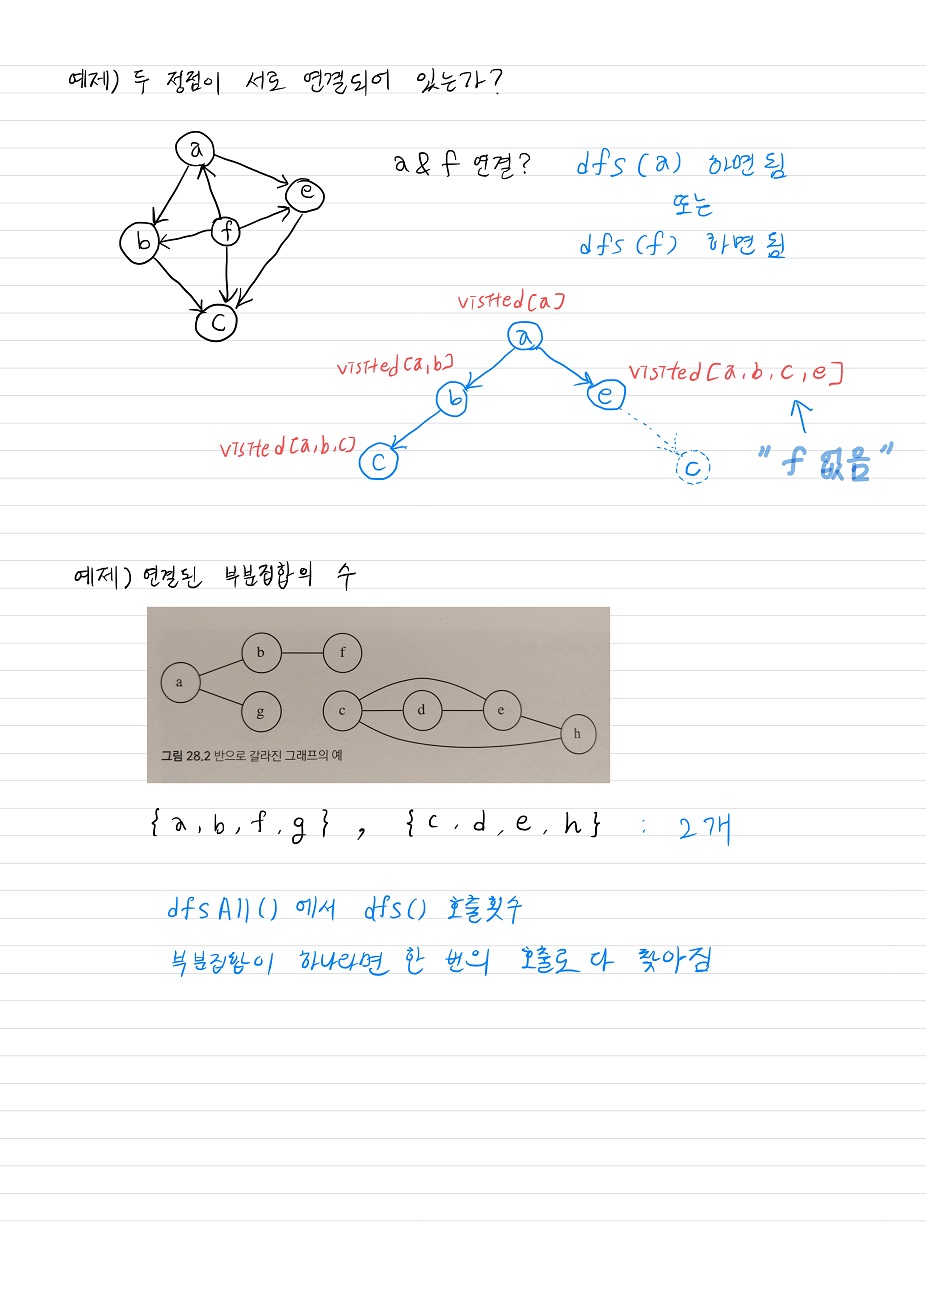 예제) 두 정점이 서로 연결되어 있는가?
a
e
b
f
c
a & f 연결? dfs(a) 하면됨
또는
dfs(f) 하면됨
visited[a]
a
visited[a,b]
b
e
visited[a,b,c,e]
visited[a,b,c]
c
c
"f 없음"
예제) 연결된 부분집합의 수
b
f
a
g
c
d
e
h
그림 28.2 반으로 갈라진 그래프의 예
{a, b, f, g} , {c, d, e, h} : 2개
dfsAll() 에서 dfs() 호출횟수
부분집합이 하나라면 한 번의 호출로 다 찾아짐